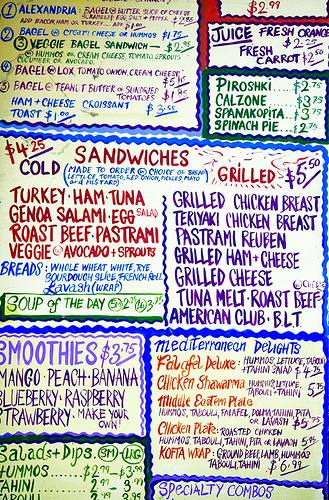 ① ALEXANDRIA: BAGEL @ BUTTER SLICE OF CHEESE
SCRAMBLED EGG, SALT + PEPPER
ADD BACON HAM OR TURKEY
② BAGEL @ CREAM CHEESE OR HUMMOS $1.75
③ VEGGIE BAGEL SANDWICH — $2.95
HUMMOS OR CREAM CHEESE, TOMATO, SPROUTS
CUCUMBER OR AVOCADO.
④ BAGEL @ LOX, TOMATO ONION, CREAM CHEESE
⑤ BAGEL @ PEANUT BUTTER OR SUNDRIED
TOMATOES
HAM + CHEESE CROISSANT
TOAST $1.00 $3.55
$2.99
JUICE FRESH
FRESH
CARROT $2.50
PIROSHKI.... $2.75
CALZONE.... $3.75
SPANAKOPITA $3.75
SPINACH PIE.. $2.75
$4.25
SANDWICHES
COLD (MADE TO ORDER @ CHOICE OF BREAD
LETTUCE, TOMATO, RED ONION, PICKLES, MAYO
and MUSTARD)
TURKEY • HAM • TUNA
GENOA SALAMI • EGG SALAD
ROAST BEEF • PASTRAMI
VEGGIE @ AVOCADO + SPROUTS
BREADS: WHOLE WHEAT, WHITE, RYE,
SOURDOUGH SLICE, FRENCH ROLL
Lavash (WRAP)
SOUP OF THE DAY
GRILLED $5.50
GRILLED CHICKEN BREAST
TERIYAKI CHICKEN BREAST
PASTRAMI REUBEN
GRILLED HAM + CHEESE
GRILLED CHEESE
TUNA MELT • ROAST BEEF
AMERICAN CLUB • B.L.T.
SMOOTHIES $3.75
MANGO • PEACH • BANANA
BLUEBERRY • RASPBERRY
STRAWBERRY. MAKE YOUR
OWN!
Salads + Dips. SM LRG
HUMMOS..... 2.99 3.99
TAHINI
Mediterranean Delights
Falafel Deluxe: HUMMOS, LETTUCE, TABOULI
+ TAHINI SALAD $4.75
Chicken Shawarma HUMMOS, LETTUCE,
TABOULI + TAHINI 5.75
Middle Eastern Plate
HUMMOS, TABOULI, FALAFEL, DOLMA, TAHINI, PITA
OR LAVASH $5.75
Chicken Plate: ROASTED CHICKEN
HUMMOS, TABOULI, TAHINI, PITA OR LAVASH
KOFTA WRAP: GROUND BEEF, LAMB, HUMMOS
TABOULI, TAHINI $6.99
SPECIALTY COMBOS